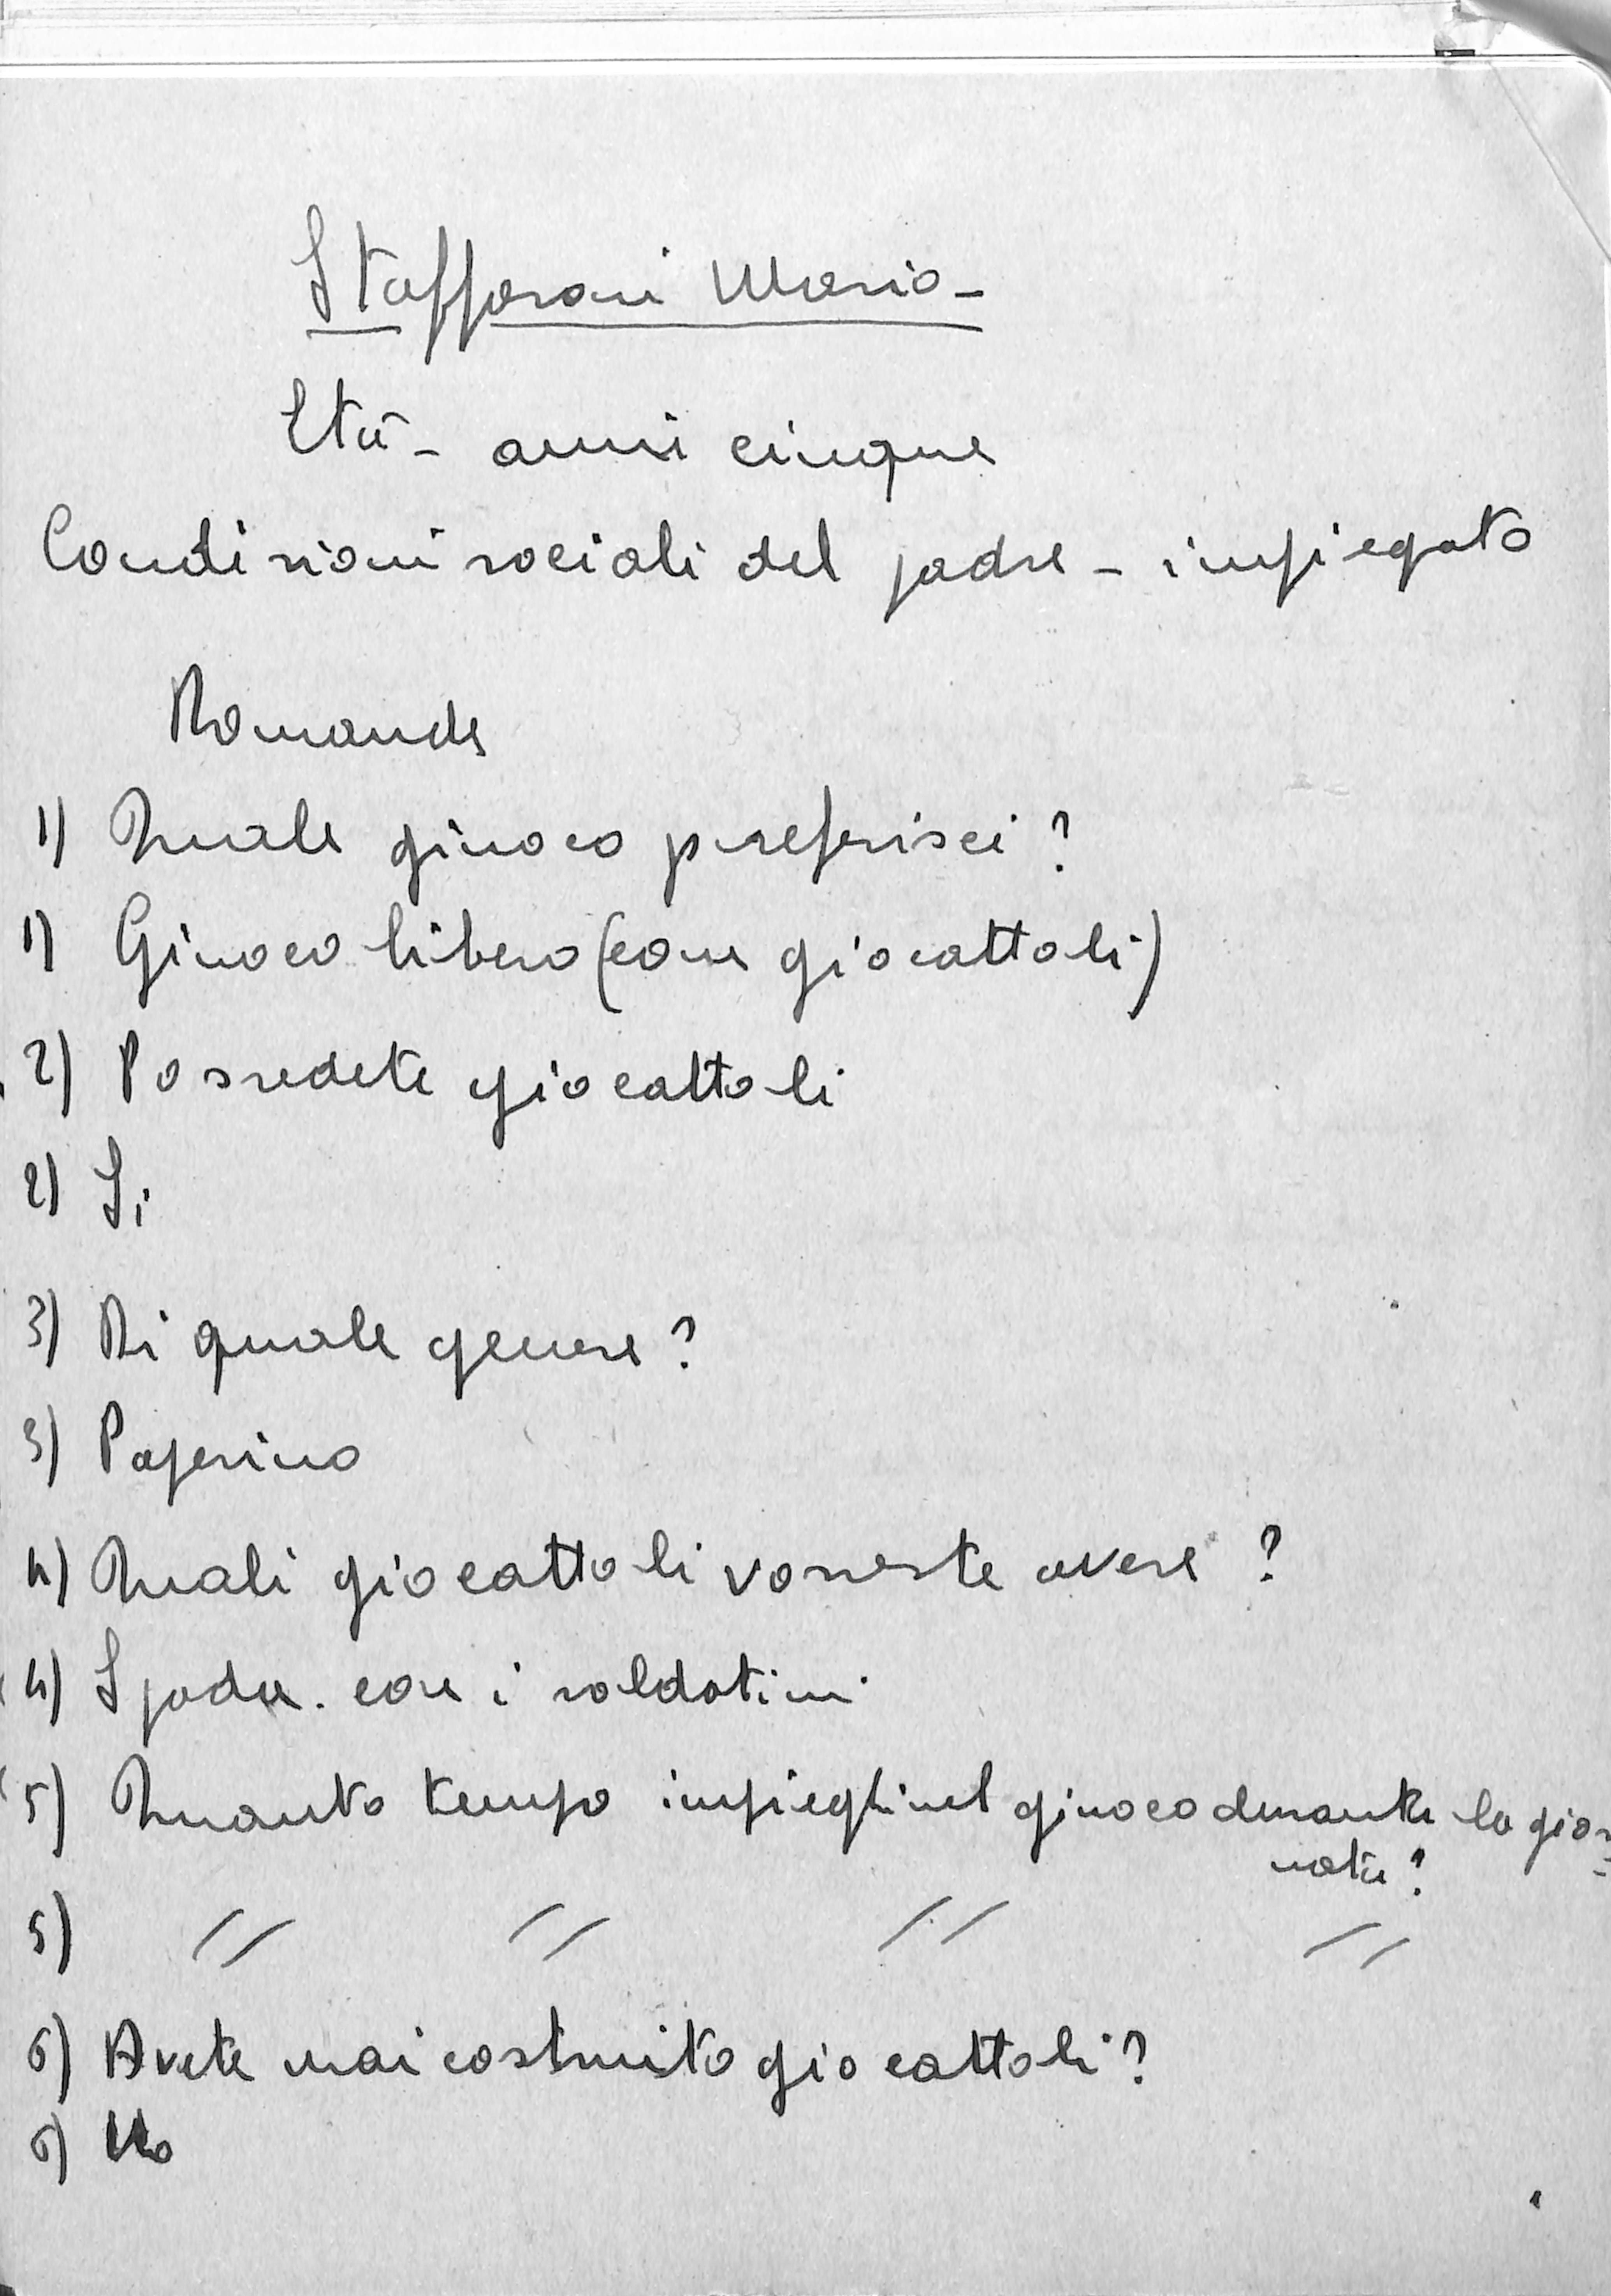 Stafforani Mario -
Età - anni cinque
Condizioni sociali del padre - impiegato
Domande
1) Quale giuoco preferisci?
1) Giuoco libero (con giocattoli)
2) Possedete giocattoli
2) Si
3) Di quale genere?
3) Paperino
4) Quali giocattoli vorreste avere?
4) Spada. con i soldatini.
5) Quanto tempo impieghi nel giuoco durante la gior-
nata?
5) // // // //
6) Avete mai costruito giocattoli?
6) No